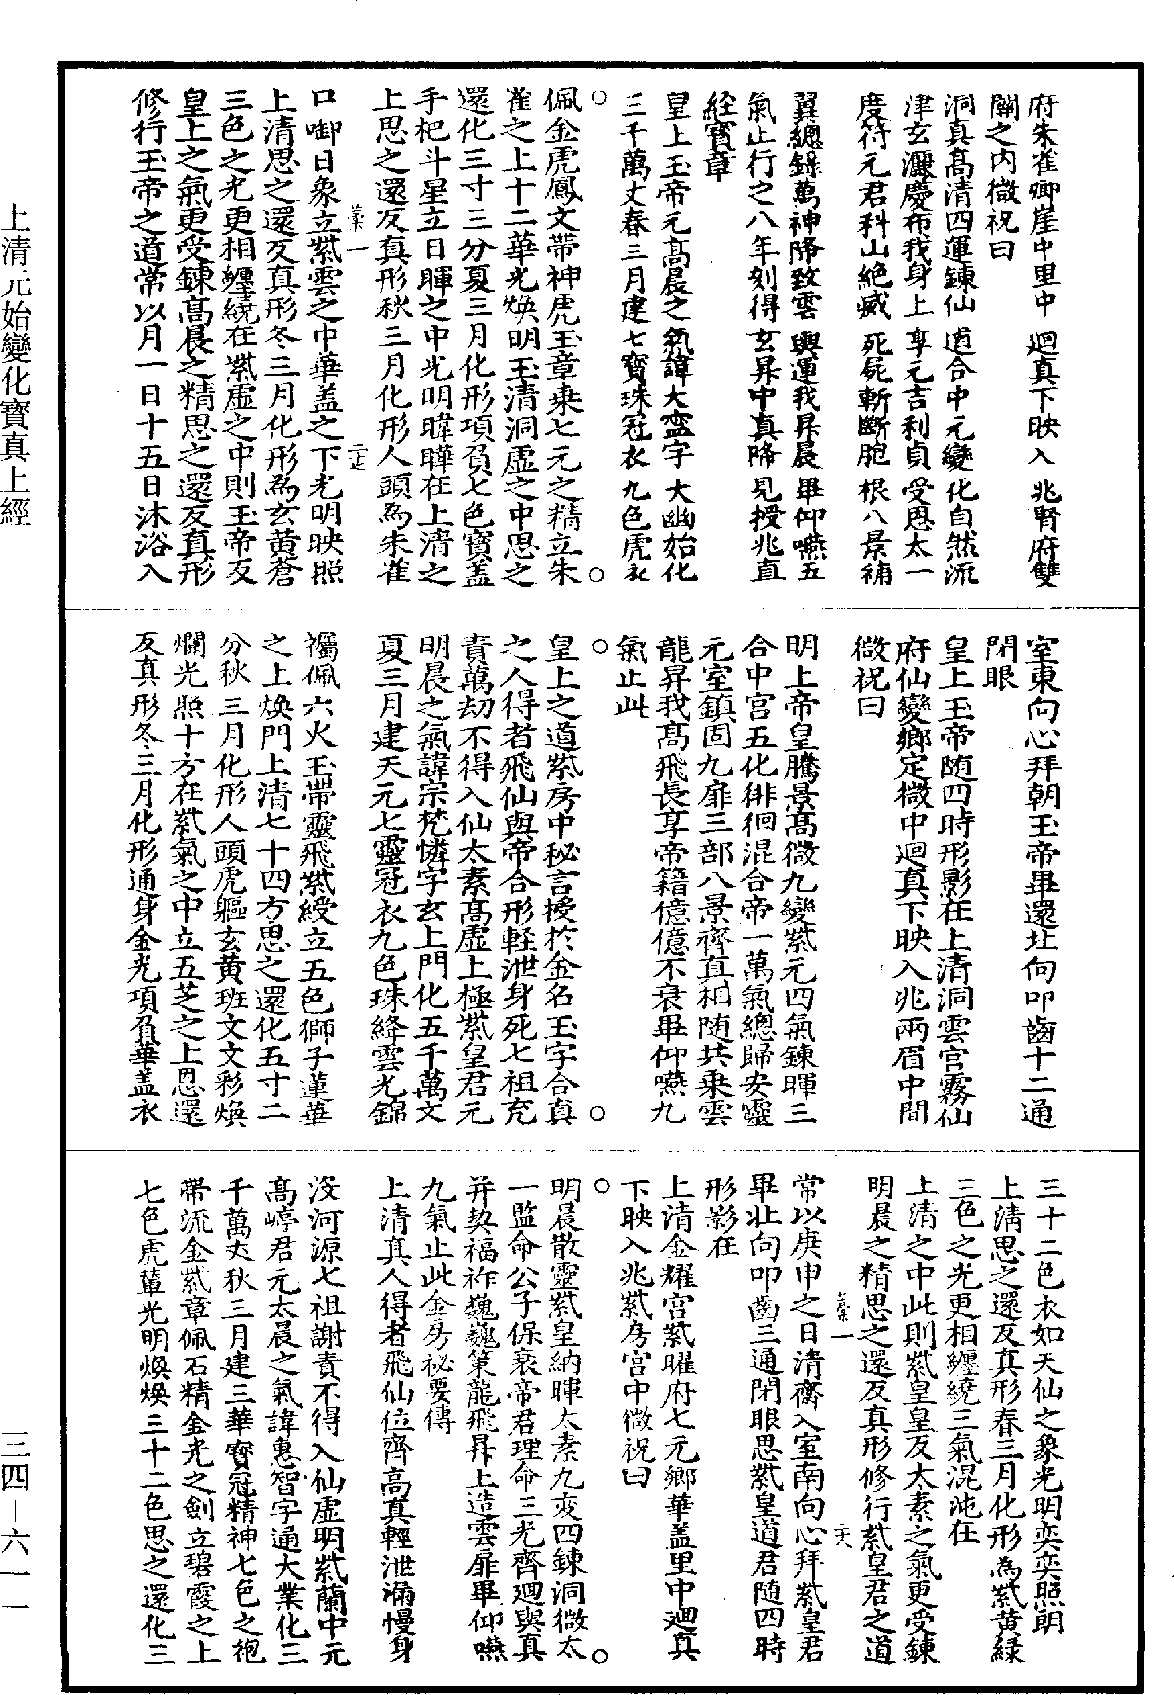 府朱雀鄉崖中里中迴真下映入兆腎府雙
闕之內微祝曰
洞真高清四運鍊仙適合中元變化自然流
津玄灑慶布我身上享元吉利貞受恩太一
度符元君科山絕滅死屍斬斷胞根八景補
翼總錄萬神降致雲輿運我昇晨畢仰嚥五
氣止行之八年刻得玄昇中真降見授兆直
經寶章
皇上玉帝元高晨之氣諱大蠻字大幽始化
三千萬丈春三月建七寶珠冠衣九色虎衣
佩金虎鳳文帶神虎玉章乘七元之精立朱
雀之上十二華光煥明玉清洞虛之中思之
還化三寸三分夏三月化形項負七色寶蓋
手把斗星立日暉之中光明暐曄在上清之
上思之還反真形秋三月化形人頭為朱雀
口啣日象立紫雲之中華蓋之下光明映照
上清思之還反真形冬三月化形為玄黃蒼
三色之光更相纏繞在紫虛之中則玉帝反
皇上之氣更受鍊高晨之精思之還反真形
修行玉帝之道常以月一日十五日沐浴入
室東向心拜朝玉帝畢還北向叩齒十二通
閉眼
皇上玉帝隨四時形影在上清洞雲宮霧仙
府仙變鄉定微中迴真下映入兆兩眉中間
微祝曰
明上帝皇騰景高微九變紫元四氣鍊暉三
合中宮五化徘徊混合帝一萬氣總歸安靈
元室鎮固九扉三部八景齊真相隨共乘雲
龍昇我高飛長享帝籍億億不衰畢仰嚥九
氣止此
皇上之道紫房中秘言授於金名玉字合真
之人得者飛仙與帝合形輕泄身死七祖充
責萬劫不得入仙太素高虛上極紫皇君元
明晨之氣諱宗梵憐字玄上門化五千萬丈
夏三月建天元七靈冠衣九色珠絳雲光錦
襡佩六火玉帶靈飛紫綬立五色獅子蓮華
之上煥門上清七十四方思之還化五寸二
分秋三月化形人頭虎軀玄黃班文文彩煥
爛光照十方在紫氣之中立五芝之上思還
反真形冬三月化形通身金光項負華蓋衣
三十二色衣如天仙之象光明奕奕照朗
上清思之還反真形春三月化形為紫黃綠
三色之光更相纏繞三氣混沌在
上清之中此則紫皇皇反太素之氣更受鍊
明晨之精思之還反真形修行紫皇君之道
常以庚申之日清齋入室南向心拜紫皇君
畢北向叩齒三通閉眼思紫皇道君隨四時
形影在
上清金耀宮紫曜府七元鄉華蓋里中迴真
下映入兆紫房宮中微祝曰
明晨散靈紫皇納暉太素九變四鍊洞微太
一監命公子保衰帝君理命三光齊迴與真
并契福祚巍巍策龍飛昇上造雲扉畢仰嚥
九氣止此金房秘要傳
上清真人得者飛仙位齊高真輕泄漏慢身
沒河源七祖謝責不得入仙虛明紫蘭中元
高崚君元太晨之氣諱惠智字通大業化三
千萬丈秋三月建三華寶冠精神七色之袍
帶流金紫章佩石精金光之劍立碧霞之上
七色虎輦光明煥煥三十二色思之還化三
上清元始變化寶真上經
三四—六一一